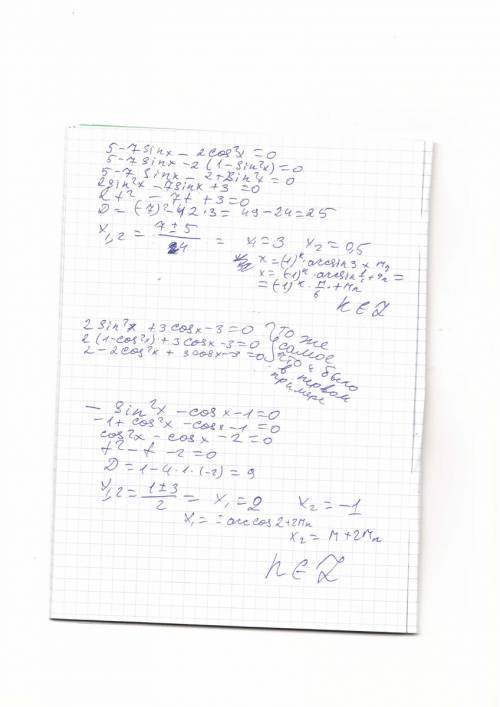 5-7sinx-2cos²x=0
5-7sinx-2(1-sin²x)=0
5-7sinx-2+2sin²x=0
2sin²x-7sinx+3=0
2t²-7t+3=0
D=(-7)²-4·2·3=49-24=25
x₁,₂=(7±5)/4 = x₁=3 x₂=0,5
x=(-1)ⁿ·arcsin3+πn
x=(-1)ⁿ·arcsin½+πn=
=(-1)ⁿ·π/6+πn
n∈Z
2sin²x+3cosx-3=0
2(1-cos²x)+3cosx-3=0
2-2cos²x+3cosx-3=0
то же
самое
что и было
в первом
примере
-sin²x-cosx-1=0
-1+cos²x-cosx-1=0
cos²x-cosx-2=0
t²-t-2=0
D=1-4·1·(-2)=9
x₁,₂=(1±3)/2= x₁=2 x₂=-1
x₁=±arccos2+2πn
x₂=π+2πn
n∈Z